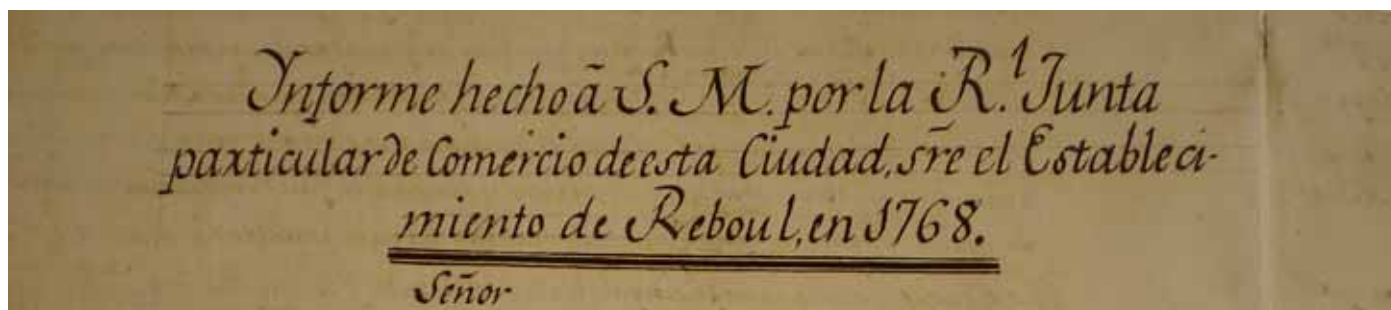 Ynforme hecho ã S. M. por la R.ˡ Junta
particular de Comercio de esta Ciudad, sr̃e el Estableci-
miento de Reboul, en 1768.
Señor